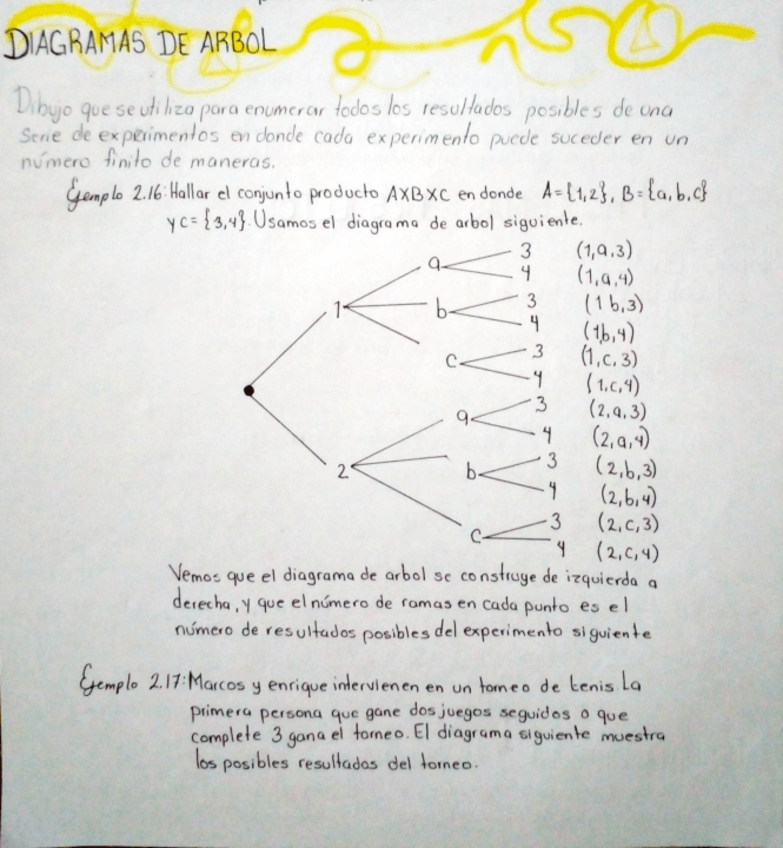 DIAGRAMAS DE ARBOL
Dibujo que se utiliza para enumerar todos los resultados posibles de una
Serie de experimentos en donde cada experimento puede suceder en un
número finito de maneras.
Ejemplo 2.16: Hallar el conjunto producto AXBXC en donde A={1,2}, B={a,b,c}
y C={3,4}. Usamos el diagrama de arbol siguiente.
a 3 (1,a,3)
4 (1,a,4)
1 b 3 (1 b,3)
4 (1b,4)
c 3 (1,c,3)
4 (1,c,4)
a 3 (2,a,3)
4 (2,a,4)
2 b 3 (2,b,3)
4 (2,b,4)
c 3 (2,c,3)
4 (2,c,4)
Vemos que el diagrama de arbol se construye de izquierda a
derecha, y que el número de ramas en cada punto es el
número de resultados posibles del experimento siguiente
Ejemplo 2.17: Marcos y enrique intervienen en un torneo de tenis La
primera persona que gane dos juegos seguidos o que
complete 3 gana el torneo. El diagrama siguiente muestra
los posibles resultados del torneo.